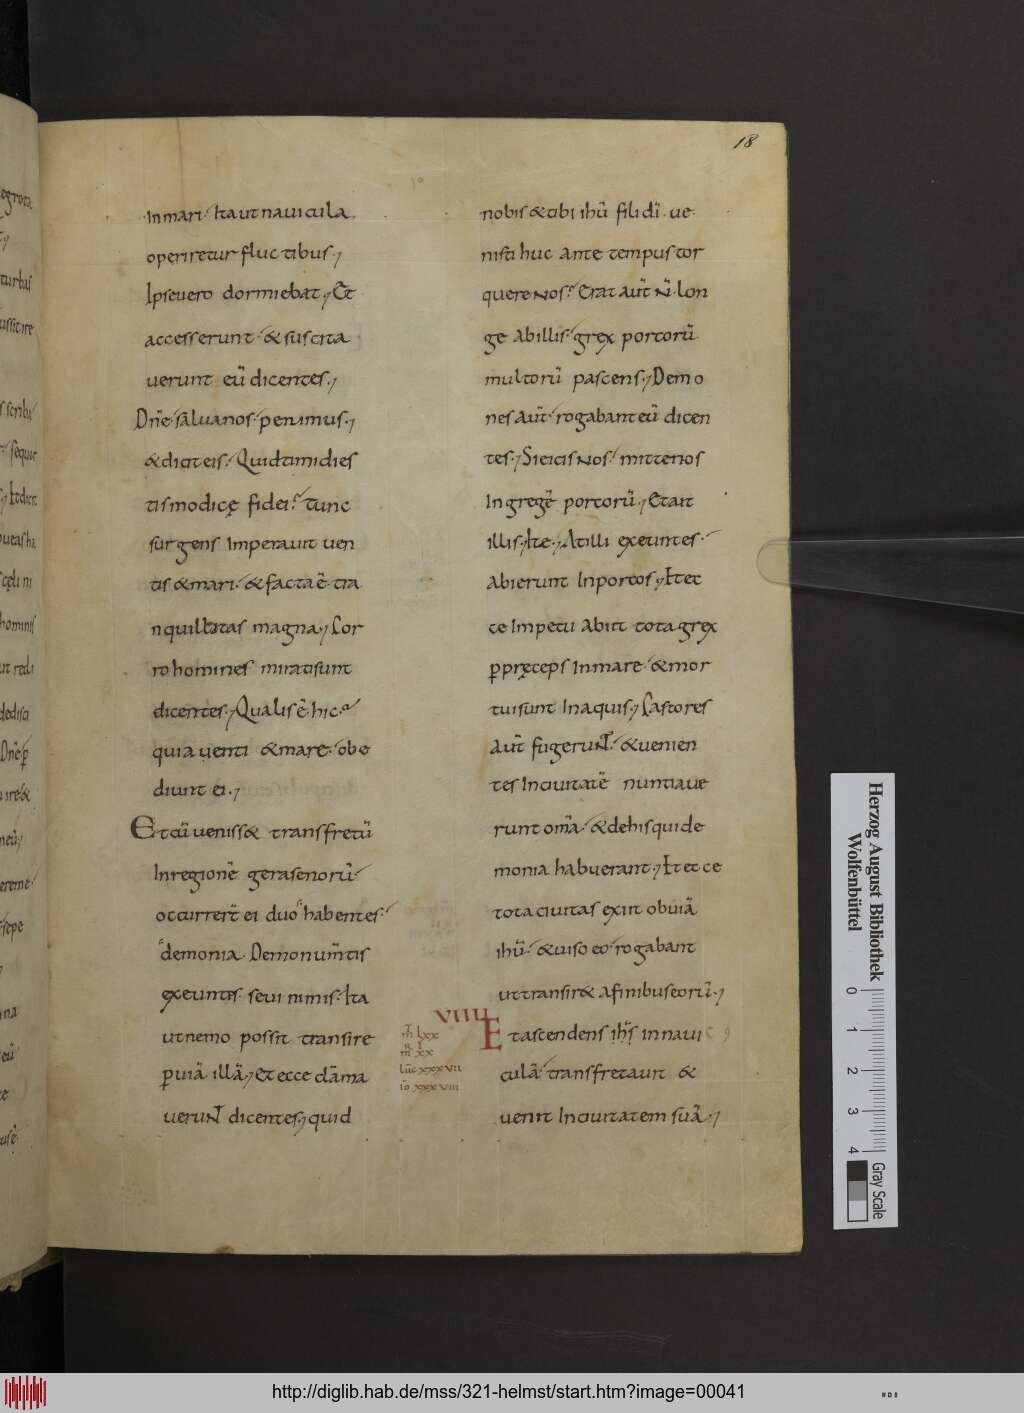 18
in mari· Ita ut navicula
operiretur fluctibus·
Ipse uero dormiebat· Et
accesserunt· & suscita
uerunt eū dicentes·
Dn̄e salua nos perimus·
& dicit eis· Quid timidi es
tis modicę fidei· tunc
surgens imperauit uen
tis & mari· & facta ē tra
nquillitas magna· Por
ro homines mirati sunt
dicentes· Qualis ē hic·
quia uenti & mare obe
diunt ei·
Et cūueniss& transfretū
In regionē gerasenorū
occurrer̄t ei duo habentes
demonia· De monum̄tis
exeuntes seui nimis· Ita
ut nemo possit transire
p uiā illā· Et ecce clāma
uerunt dicentes· quid
nobis & tibi ihū fili dī· ue
nisti huc ante tempus tor
quere nos· Erat aut̄ n̄ lon
ge ab illis grex porcorū
multorū pascens· Demo
nes aut̄ rogabant eū dicen
tes· Si eicis nos mitte nos
In gregē porcorū· Et ait
illis· Ite· At illi exeuntes
abierunt In porcos· Et ec
ce Impetu abiit tota grex
p pręceps In mare & mor
tui sunt In aquis· Pastores
aut̄ fugerunt & uenien
tes In ciuitatē nuntiaue
runt om̄a & de his qui de
monia habuerant· Et ecce
tota ciuitas exiit obuiā
ihū & uiso eo rogabant
ut transir& a finibus eorū·
VIIII
m̄ lxx
R I
m̄ xx
luc̄ xxxvii
iō xxxviii
Et ascendens ih̄s in naui
culā transfretauit &
uenit In ciuitatem suā·
Herzog August Bibliothek
Wolfenbüttel
0 1 2 3 4
Gray Scale
http://diglib.hab.de/mss/321-helmst/start.htm?image=00041